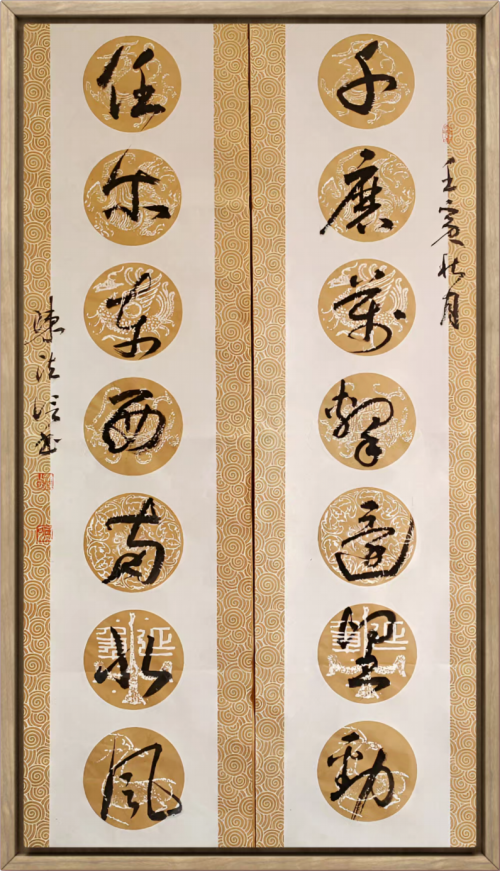 壬寅秋月
千磨萬擊還堅勁
任尔東西南北風
陳法信书